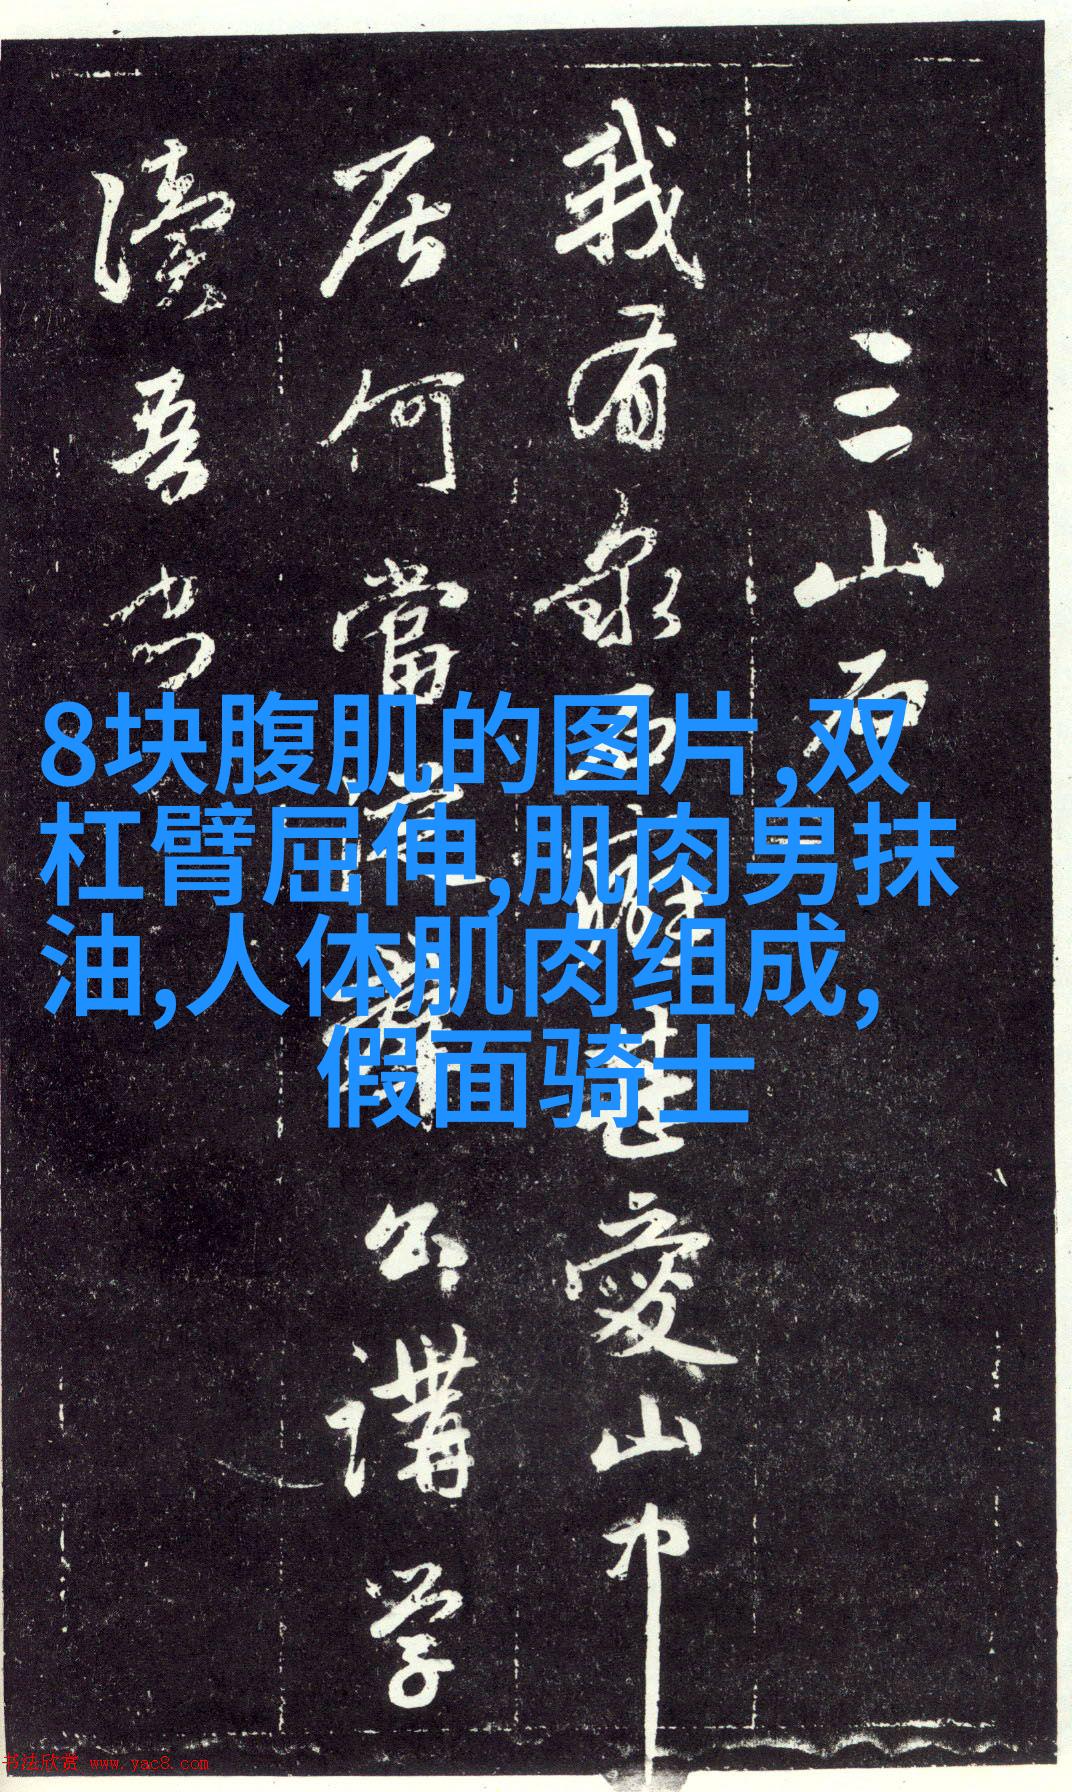 三山石
我有泉石癖甚愛山中
居何當公講学
讀吾
8块腹肌的图片,双
杠臂屈伸,肌肉男抹
油,人体肌肉组成,
假面骑士
书法欣赏 www.yac8.com